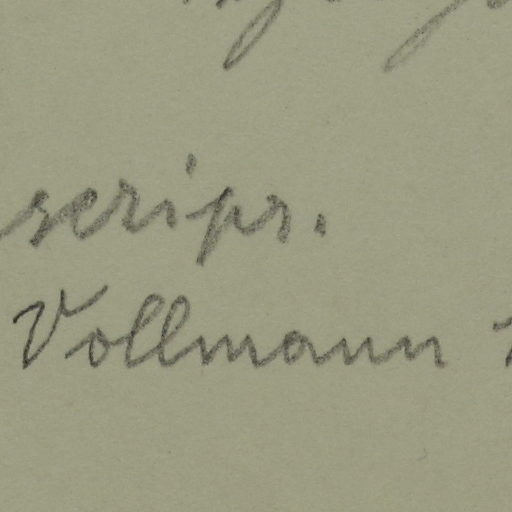 scrips.
Vollmann